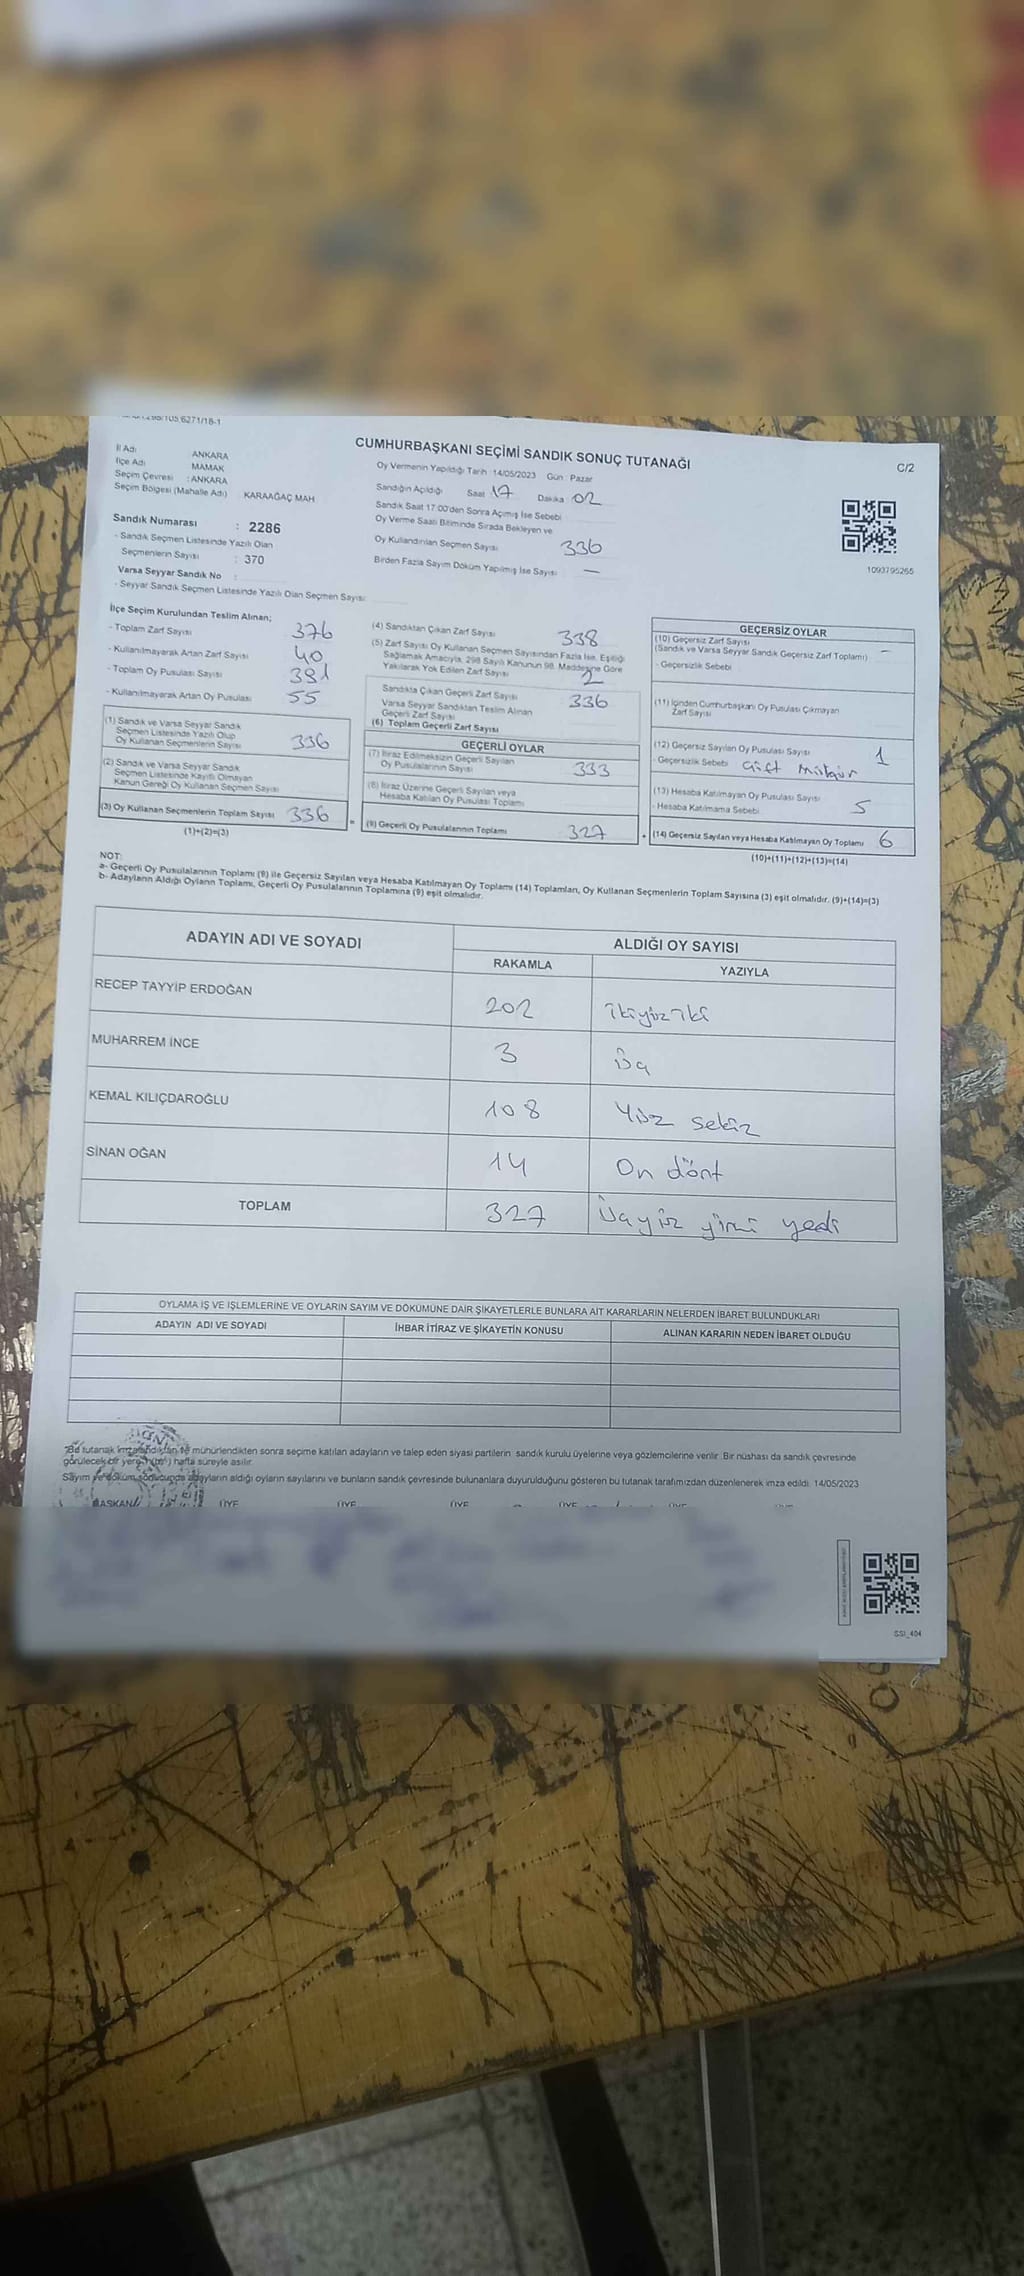 CUMHURBAŞKANI SEÇİMİ SANDIK SONUÇ TUTANAĞI
C/2
İl Adı ANKARA
İlçe Adı MAMAK
Seçim Çevresi : ANKARA
Seçim Bölgesi (Mahalle Adı) KARAAĞAÇ MAH
Sandık Numarası : 2286
- Sandık Seçmen Listesinde Yazılı Olan
Seçmenlerin Sayısı : 370
Varsa Seyyar Sandık No :
- Seyyar Sandık Seçmen Listesinde Yazılı Olan Seçmen Sayısı:
Oy Vermenin Yapıldığı Tarih :14/05/2023 Gün : Pazar
Sandığın Açıldığı Saat 17 Dakika 02
Sandık Saat 17:00'den Sonra Açımış İse Sebebi
Oy Verme Saati Bitiminde Sırada Bekleyen ve
Oy Kullandırılan Seçmen Sayısı 336
Birden Fazla Sayım Döküm Yapılmış İse Sayısı : —
1093795265
İlçe Seçim Kurulundan Teslim Alınan;
- Toplam Zarf Sayısı 376
- Kullanılmayarak Artan Zarf Sayısı 40
- Toplam Oy Pusulası Sayısı 381
- Kullanılmayarak Artan Oy Pusulası 55
(1) Sandık ve Varsa Seyyar Sandık
Seçmen Listesinde Yazılı Olup
Oy Kullanan Seçmenlerin Sayısı 336
(2) Sandık ve Varsa Seyyar Sandık
Seçmen Listesinde Kayıtlı Olmayan
Kanun Gereği Oy Kullanan Seçmen Sayısı
(3) Oy Kullanan Seçmenlerin Toplam Sayısı 336
(1)+(2)=(3)
(4) Sandıktan Çıkan Zarf Sayısı 338
(5) Zarf Sayısı Oy Kullanan Seçmen Sayısından Fazla İse, Eşitliği
Sağlamak Amacıyla, 298 Sayılı Kanunun 98. Maddesine Göre
Yakılarak Yok Edilen Zarf Sayısı 2
Sandıkta Çıkan Geçerli Zarf Sayısı 336
Varsa Seyyar Sandıktan Teslim Alınan
Geçerli Zarf Sayısı
(6) Toplam Geçerli Zarf Sayısı
GEÇERLİ OYLAR
(7) İtiraz Edilmeksizin Geçerli Sayılan
Oy Pusulalarının Sayısı 333
(8) İtiraz Üzerine Geçerli Sayılan veya
Hesaba Katılan Oy Pusulası Toplamı
= (9) Geçerli Oy Pusulalarının Toplamı 327
GEÇERSİZ OYLAR
(10) Geçersiz Zarf Sayısı
(Sandık ve Varsa Seyyar Sandık Geçersiz Zarf Toplamı) -
- Geçersizlik Sebebi
(11) İçinden Cumhurbaşkanı Oy Pusulası Çıkmayan
Zarf Sayısı
(12) Geçersiz Sayılan Oy Pusulası Sayısı 1
- Geçersizlik Sebebi Çift Mühür
(13) Hesaba Katılmayan Oy Pusulası Sayısı 5
- Hesaba Katılmama Sebebi
+ (14) Geçersiz Sayılan veya Hesaba Katılmayan Oy Toplamı 6
(10)+(11)+(12)+(13)=(14)
NOT:
a- Geçerli Oy Pusulalarının Toplamı (9) ile Geçersiz Sayılan veya Hesaba Katılmayan Oy Toplamı (14) Toplamları, Oy Kullanan Seçmenlerin Toplam Sayısına (3) eşit olmalıdır. (9)+(14)=(3)
b- Adayların Aldığı Oyların Toplamı, Geçerli Oy Pusulalarının Toplamına (9) eşit olmalıdır.
ADAYIN ADI VE SOYADI ALDIĞI OY SAYISI
RAKAMLA YAZIYLA
RECEP TAYYİP ERDOĞAN 202 İkiyüziki
MUHARREM İNCE 3 Üç
KEMAL KILIÇDAROĞLU 108 Yüz sekiz
SİNAN OĞAN 14 On dört
TOPLAM 327 Üçyüz yirmi yedi
OYLAMA İŞ VE İŞLEMLERİNE VE OYLARIN SAYIM VE DÖKÜMÜNE DAİR ŞİKAYETLERLE BUNLARA AİT KARARLARIN NELERDEN İBARET BULUNDUKLARI
ADAYIN ADI VE SOYADI İHBAR İTİRAZ VE ŞİKAYETİN KONUSU ALINAN KARARIN NEDEN İBARET OLDUĞU
"Bu tutanak imzalandıktan ve mühürlendikten sonra seçime katılan adayların ve talep eden siyasi partilerin sandık kurulu üyelerine veya gözlemcilerine verilir. Bir nüshası da sandık çevresinde
görülecek bir yere (bir) hafta süreyle asılır.
Sayım ve döküm sonucunda adayların aldığı oyların sayılarını ve bunların sandık çevresinde bulunanlara duyurulduğunu gösteren bu tutanak tarafımızdan düzenlenerek imza edildi. 14/05/2023
BAŞKAN ÜYE ÜYE ÜYE ÜYE ÜYE
SSI_404